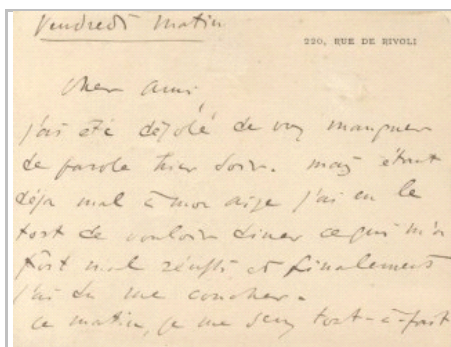 Vendredi matin
220, RUE DE RIVOLI
Cher ami
j'ai été désolé de vous manquer
de parole hier soir. mais étant
déja mal à mon aise j'ai eu le
tort de vouloir diner ce qui m'a
fort mal réussi et finalement
j'ai du me coucher.
ce matin, je me sens tout-à-fait